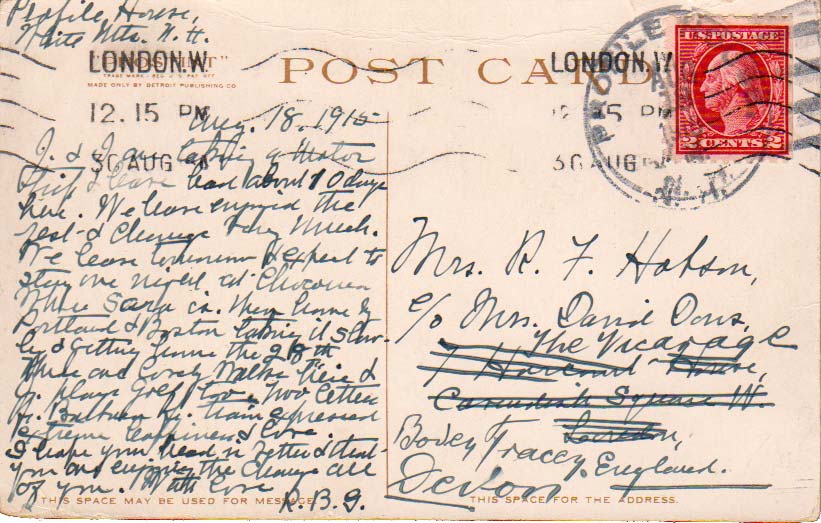 Profile House,
White Mts. N. H.
"PHOSTINT"
TRADE MARK - REG. U.S. PAT. OFF.
MADE ONLY BY DETROIT PUBLISHING CO.
POST CARD
LONDON. W.
12.15 PM
30 AUG
LONDON. W.
12.15 PM
30 AUG
PROFILE
N.H.
U.S. POSTAGE
2 CENTS 2
Aug. 18, 1915
J. & I are taking a motor
trip & have had about 10 days
here. We have enjoyed the
rest & change very much.
We leave tomorrow & expect to
stay one night at Chocorua
where Sara is. Then home by
Portland & Boston taking it slow-
ly & getting home the 28th
There are lovely walks here &
J. plays golf too. Two letters
fr. Barbara train expressed
extreme happiness & love.
I hope your head is better & that
you are enjoying the change all
of you. With love
K.B.G.
THIS SPACE MAY BE USED FOR MESSAGE
Mrs. R. F. Hobson,
c/o Mrs. David Dons,
The Vicarage
7 Harcourt House,
Cavendish Square W.
London,
Bovey Tracey
England.
Devon
THIS SPACE FOR THE ADDRESS.